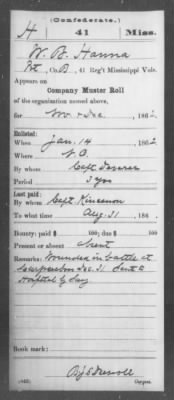 (Confederate.)
H 41 Miss.
W. W. Hanna
Pvt, Co. B, 41 Reg't Mississippi Vols.
Appears on
Company Muster Roll
of the organization named above,
for Nov & Dec, 1862.
Enlisted:
When Jan. 14, 1862.
Where
By whom Capt
Period 3 yrs
Last paid:
By whom Capt Kincanon
To what time Aug. 31, 186 .
Bounty: paid $ 100; due $ 100
Present or absent Absent
Remarks: Wounded in battle at
Murfreesboro Dec. 31 Sent to
Hospital by Surg
Book mark:
Copyist.